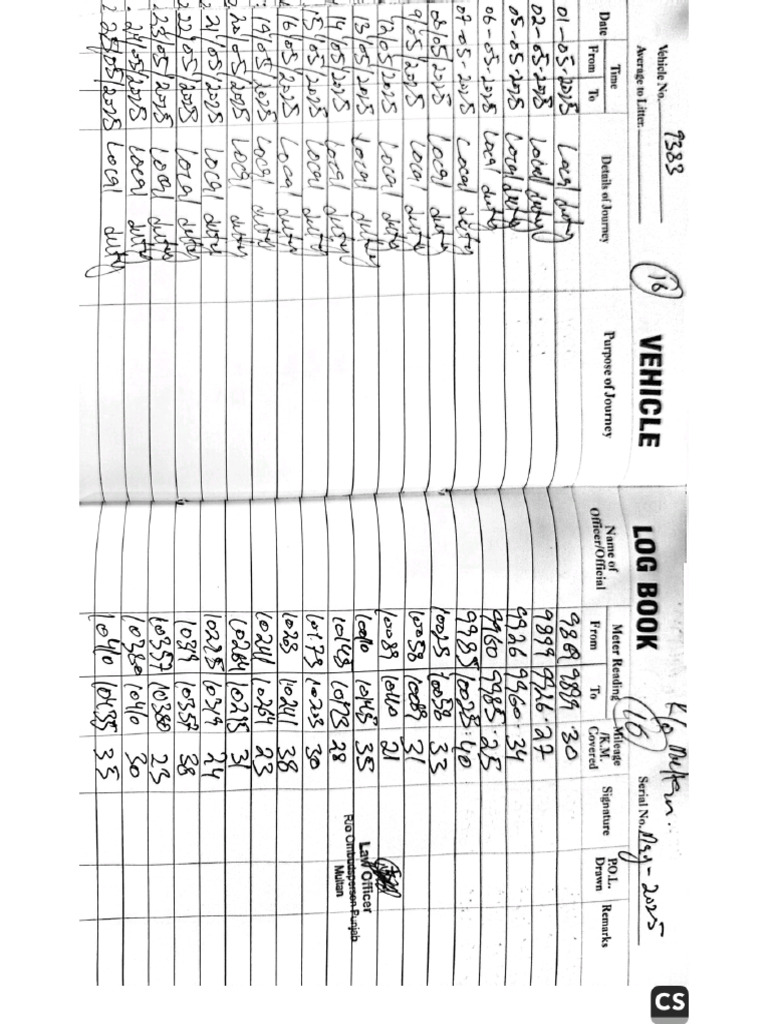 K/o Multan.
VEHICLE LOG BOOK
16 16
Vehicle No. 9383 Serial No. May-2025
Average to Litter.
Date Time From To Details of Journey Purpose of Journey Name of Officer/Official Meter Reading From To Mileage /K.M. Covered Signature P.O.L. Drawn Remarks
01-05-2025 Local duty 9869 9899 30
02-05-2025 Local duty 9899 9926 27
05-05-2025 Local duty 9926 9960 34
06-05-2025 Local duty 9960 9985 25
07-05-2025 Local duty 9985 10025 40
08/05/2025 Local duty 10025 10058 33
9/05/2025 Local duty 10058 10089 31
12/05/2025 Local duty 10089 10110 21
13/05/2025 Local duty 10110 10145 35
14/05/2025 Local duty 10145 10173 28
15/05/2025 Local duty 10173 10203 30
16/05/2025 Local duty 1023 10241 38
19/05/2025 Local duty 10241 10264 23
20/05/2025 Local duty 10264 10295 31
21/05/2025 Local duty 10295 10319 24
22/05/2025 Local duty 10319 10357 38
23/05/2025 Local duty 10357 10380 23
24/05/2025 Local duty 10380 10410 30
/05/2025 Local duty 10410 10435 33
Law Officer
R/o Ombudsperson Punjab
Multan
CS